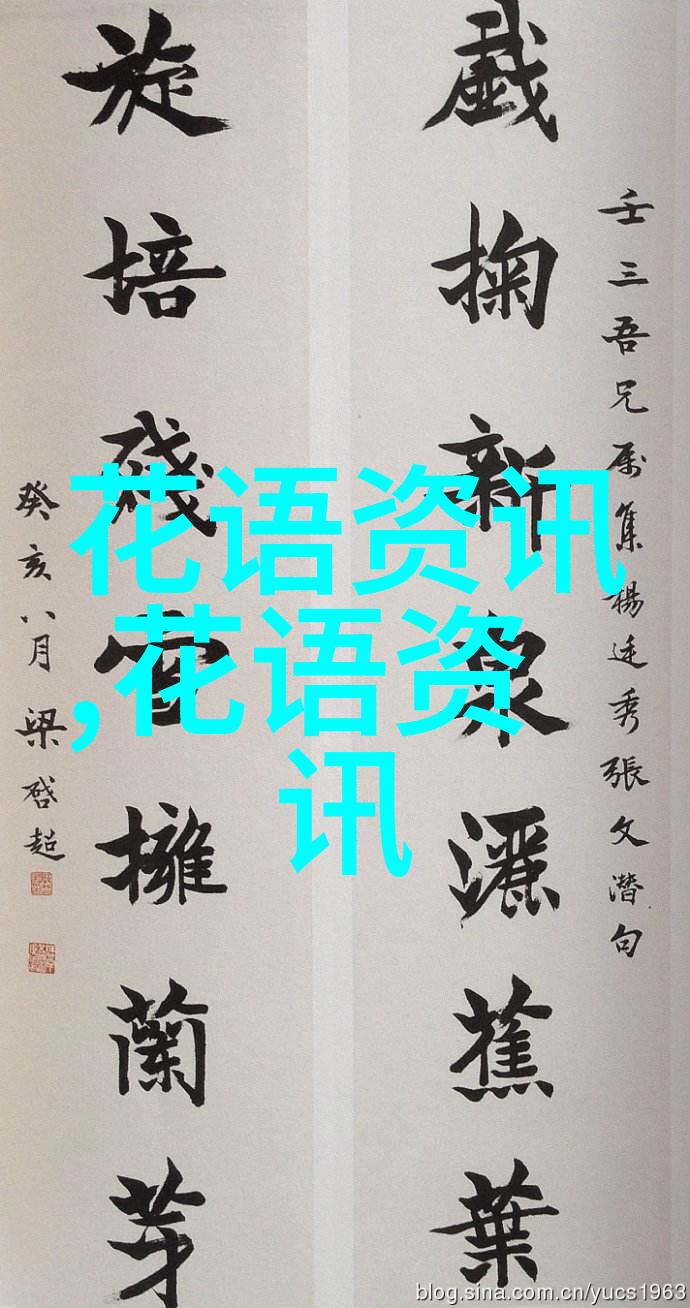 壬三吾兄属集楊廷秀張文潛句
戱掬新泉灑蕉葉
旋培殘雪擁蘭芽
癸亥八月梁啓超
花语资讯
,花语资
讯
blog.sina.com.cn/yucs1963